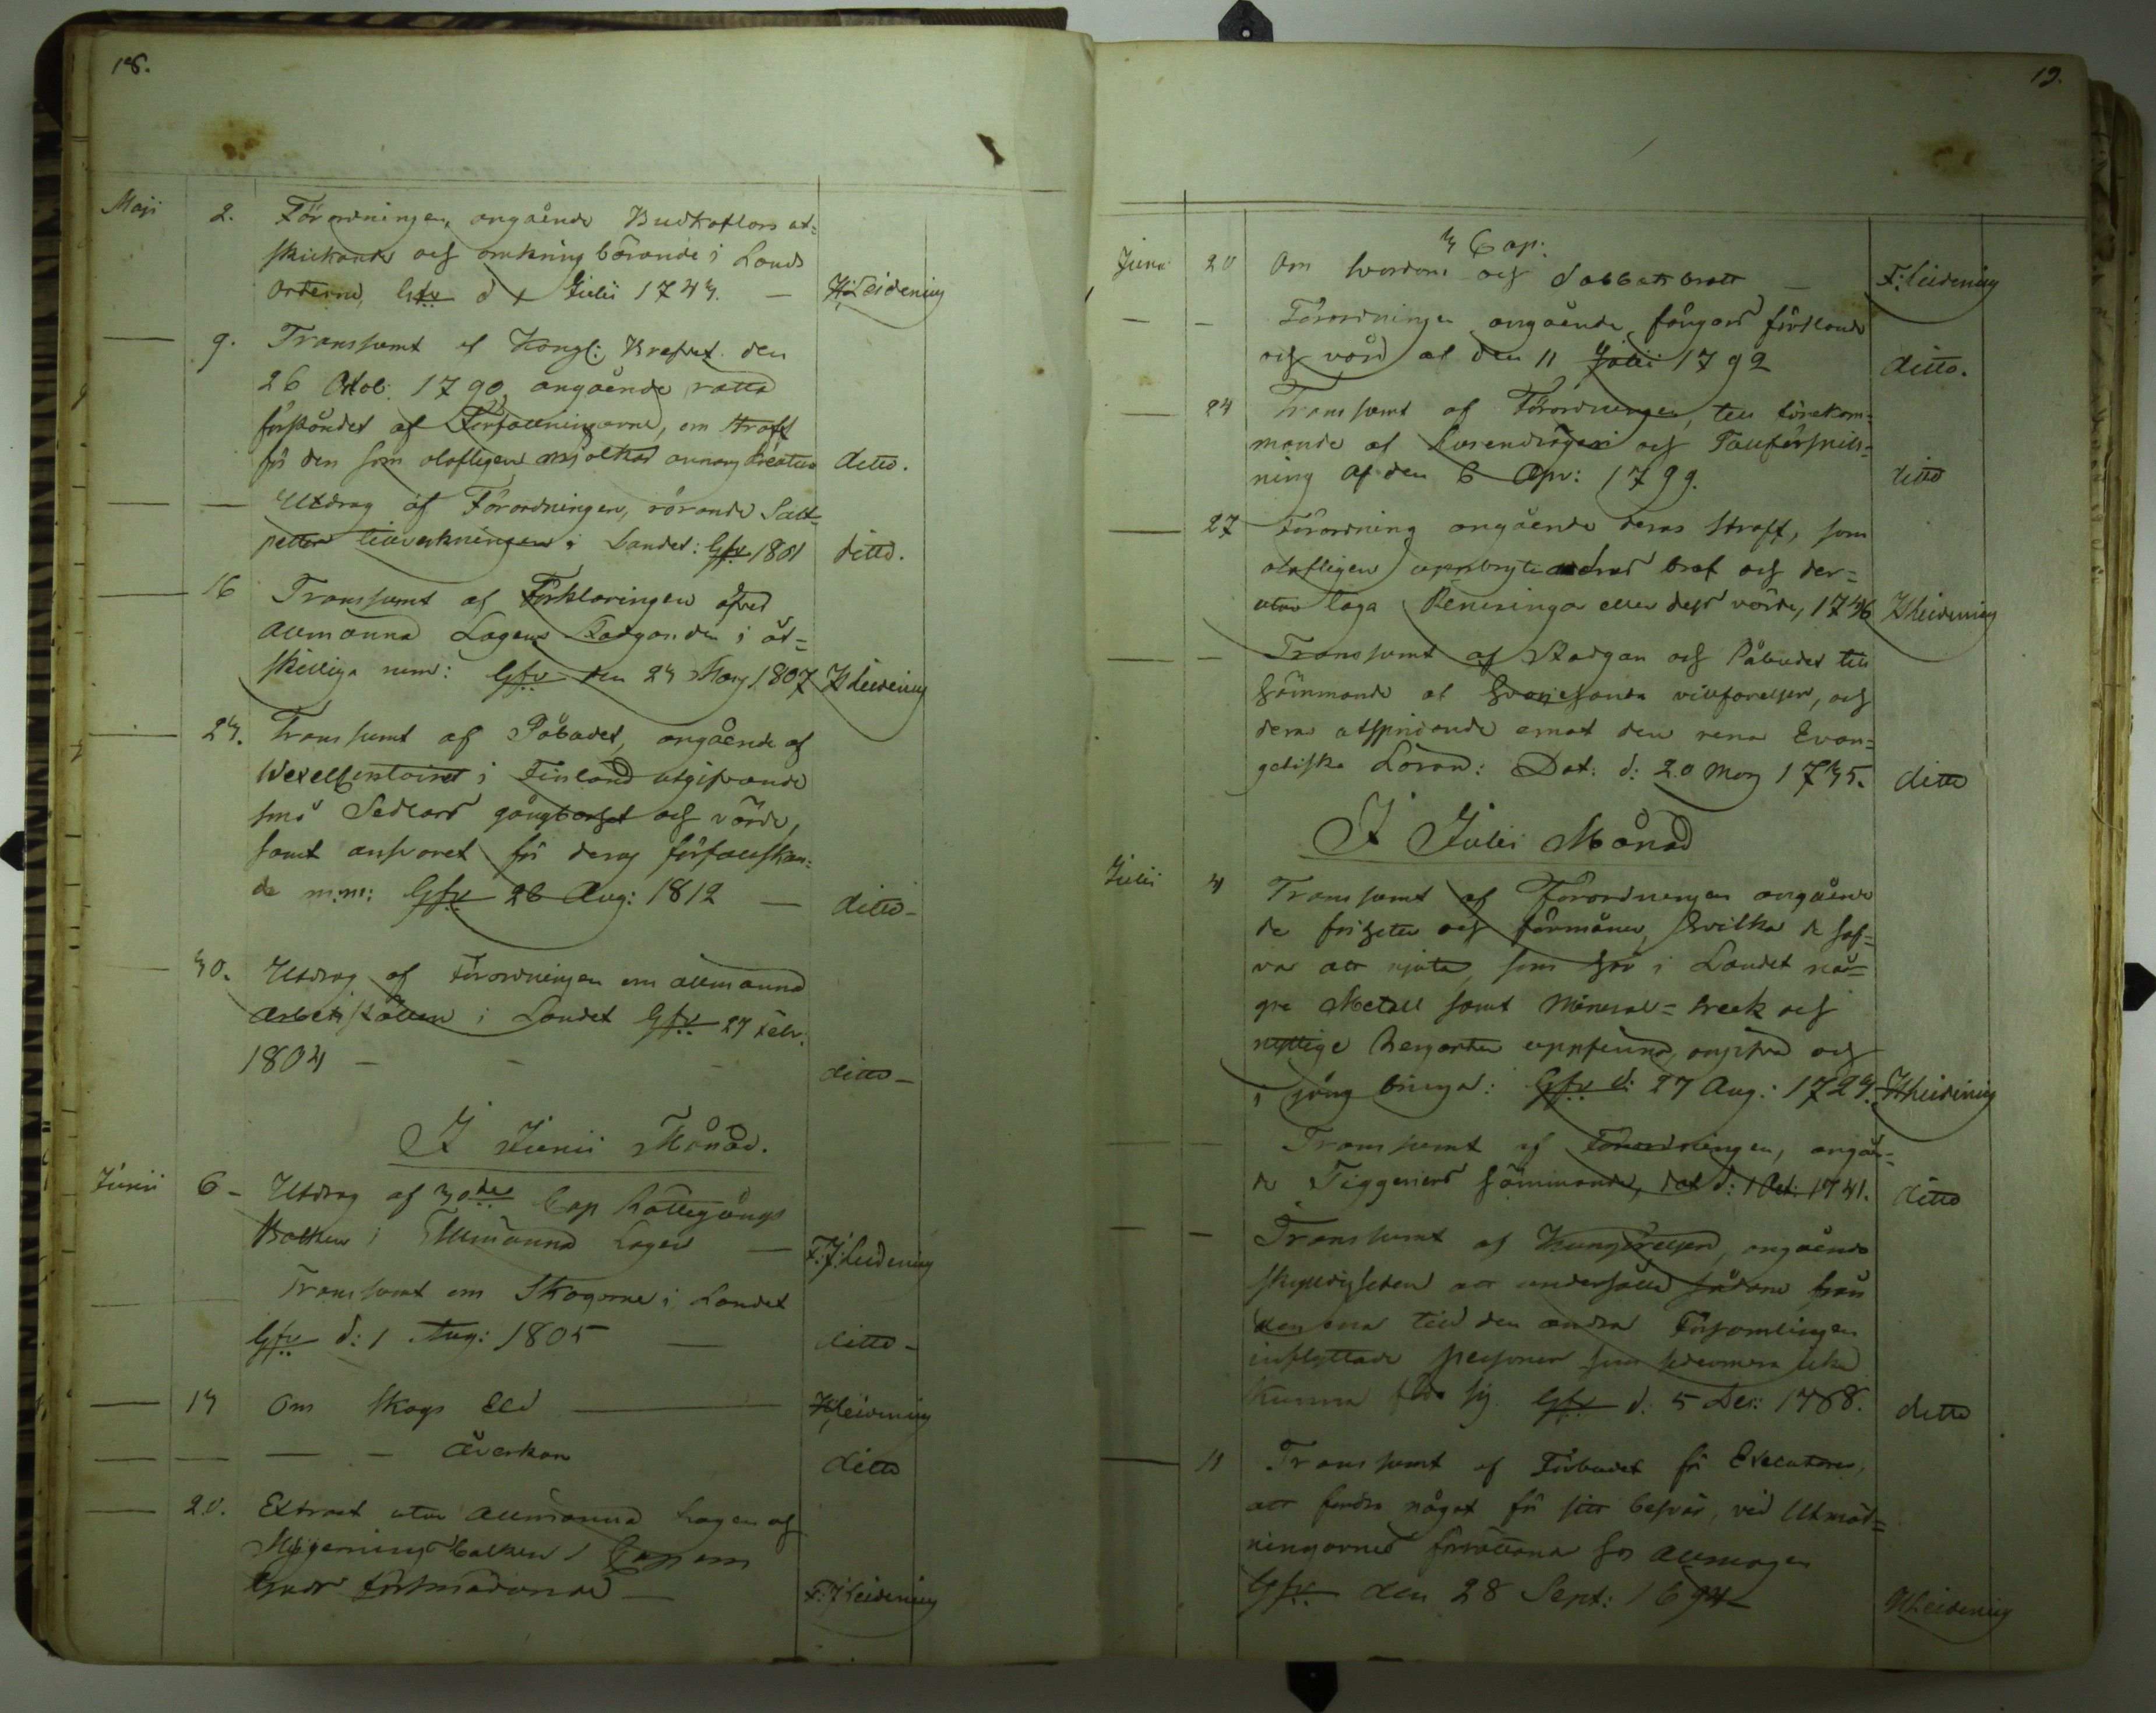 18.
Maji 2. Förordningen, angående Budkaflars ut=
skickande och omkring bärande i Lands
Orterne, Gfv d 1 Julii 1743. — Leidenius
— 9. Transsumt af Kongl: Brefvet den
26 Octob: 1790, angående rätta
förståndet af Författningarne, om straff
för den som olofligen mjölkar annans Kreatur ditto.
— — Utdrag af Förordningen, rörande Salt=
petter tillverkningen i Landet: Gfv 1801 ditto.
— 16 Transsumt af Förklaringen öfver
Allmänna Lagens Stadganden i åt=
skilliga rum: Gfv den 23 Marj 1807 Leidenius
— 23. Transsumt af Påbudet, angående af
Wexel Contoiret i Finland utgifvande
små Sedlars gångbarhet och värde,
samt ansvaret för deras förfalskan=
de m:m: Gfv 26 Aug: 1812 — ditto -
— 30. Utdrag af Förordningen om allmänna
Arbets ställen i Landet Gfv 27 Febr.
1804 - - - ditto -
I Junii Månad.
Junii 6 - Utdrag af 30de Cap Rättegångs
Balken i Allmänna Lagen — F: J: Leidenius
Transsumt om Skogarne i Landet
Gfv d: 1 Aug: 1805 — ditto -
— 13 Om Skogs Eld — Leidenius
— — — - Åverkan ditto
— 20. Extract utur Allmänna Lagen af
Missgernings Balken 1 Cap om
Guds försmädande — F: J Leidenius
19.
3 Cap:
Junii 20 Om svordom och Sabbatsbrott — F: Leidenius
— - Förordningen angående fångars
och vård af den 11 Julii 1792 ditto.
— 24 Transsumt af Förordningen, till förekom=
mande af Lurendrägeri och Tullförsnill=
ning af den 6 Apr: 1799. ditto
— 27 Förordning angående deras straff, som
olofligen uppbryta andras bref och der=
utur taga Penningar eller dess värde, 1736 Leidenius
— - Transsumt af Stadgan och Påbudet till
hämmande af hvarjehanda villfarelser, och
deras utspridande emot den rena Evan=
geliska Läran: Dat: d: 20 Marj 1735. ditto
I Julii Månad
Julii 4 Transsumt af Förordningen angående
de friheter och förmåner, hvilka de haf=
va att njuta, som här i Landet nå=
gre Metall samt Mineral= Streck och
nyttige Bergarter uppfinna, angifva och
i gång bringa: Gfv d: 27 Aug: 1723. Leidenius
— — Transsumt af Förordningen, angåen=
de Tiggeriers hämmande, dat d: 1 Oct: 1741. ditto
— - Transsumt af Kungörelsen, angående
skyldigheten att underhålla sådane från
den ena till den andra Församlingen
inflyttade personer som sedermera icke
kunna föda sig. Gfv d: 5 Dec: 1788. ditto
— 11 Transsumt af Förbudet för Executorer,
att fordra något för sitt besvär, vid Utmät=
ningarnes förrättande hos Allmogen
Gfv den 28 Sept: 1694 Leidenius